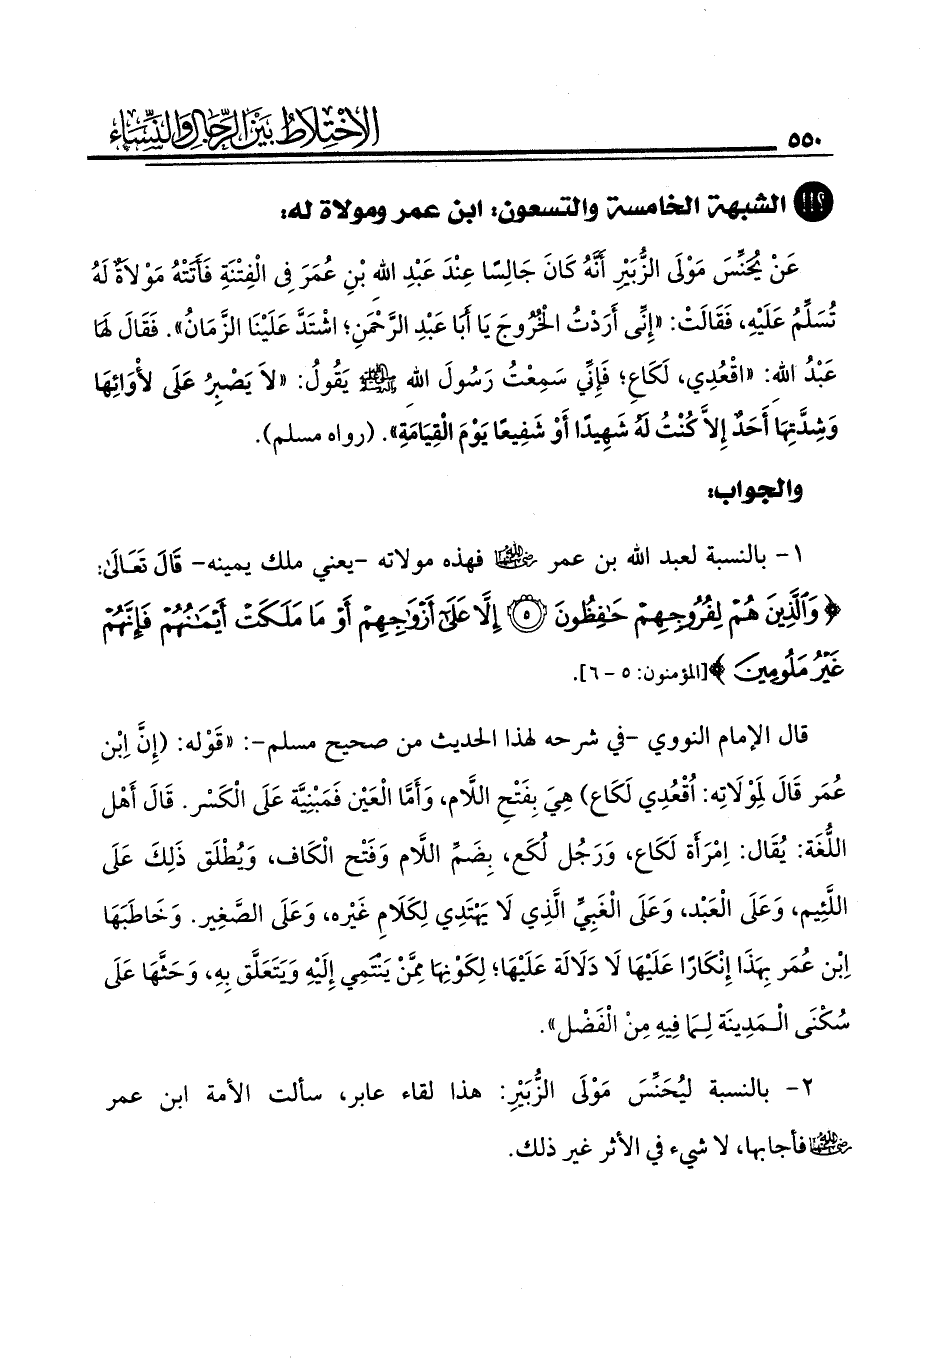 ٥٥٠
الاختلاط بين الرجال والنساء
الشبهة الخامسة والتسعون: ابن عمر ومولاة له:
عَنْ يُحَنِّسَ مَوْلَى الزُّبَيْرِ أَنَّهُ كَانَ جَالِسًا عِنْدَ عَبْدِ اللهِ بْنِ عُمَرَ فِى الْفِتْنَةِ فَأَتَتْهُ مَوْلاَةٌ لَهُ
تُسَلِّمُ عَلَيْهِ، فَقَالَتْ: «إِنِّى أَرَدْتُ الْخُرُوجَ يَا أَبَا عَبْدِ الرَّحْمَنِ؛ اشْتَدَّ عَلَيْنَا الزَّمَانُ». فَقَالَ لَهَا
عَبْدُ اللهِ: «اقْعُدِي، لَكَاعِ؛ فَإِنِّي سَمِعْتُ رَسُولَ اللهِ ﷺ يَقُولُ: «لاَ يَصْبِرُ عَلَى لأْوَائِهَا
وَشِدَّتِهَا أَحَدٌ إِلاَّ كُنْتُ لَهُ شَهِيدًا أَوْ شَفِيعًا يَوْمَ الْقِيَامَةِ». (رواه مسلم).
والجواب:
١- بالنسبة لعبد الله بن عمر رضي الله عنهما فهذه مولاته -يعني ملك يمينه- قَالَ تَعَالَىٰ:
﴿وَٱلَّذِينَ هُمْ لِفُرُوجِهِمْ حَٰفِظُونَ ٥ إِلَّا عَلَىٰٓ أَزْوَٰجِهِمْ أَوْ مَا مَلَكَتْ أَيْمَٰنُهُمْ فَإِنَّهُمْ
غَيْرُ مَلُومِينَ﴾ [المؤمنون: ٥ - ٦].
قال الإمام النووي -في شرحه لهذا الحديث من صحيح مسلم-: «قَوْله: (إِنَّ اِبْن
عُمَر قَالَ لِمَوْلَاتِه: اُقْعُدِي لَكَاعِ) هِيَ بِفَتْحِ اللَّام، وَأَمَّا الْعَيْن فَمَبْنِيَّة عَلَى الْكَسْر. قَالَ أَهْل
اللُّغَة: يُقَال: اِمْرَأَة لَكَاعِ، وَرَجُل لُكَع، بِضَمِّ اللَّام وَفَتْح الْكَاف، وَيُطْلَق ذَلِكَ عَلَى
اللَّئِيم، وَعَلَى الْعَبْد، وَعَلَى الْغَبِيِّ الَّذِي لَا يَهْتَدِي لِكَلَامِ غَيْره، وَعَلَى الصَّغِير. وَخَاطَبَهَا
اِبْن عُمَر بِهَذَا إِنْكَارًا عَلَيْهَا لَا دَلَالَة عَلَيْهَا؛ لِكَوْنِهَا مِمَّنْ يَنْتَمِي إِلَيْهِ وَيَتَعَلَّق بِهِ، وَحَثَّهَا عَلَى
سُكْنَى الْمَدِينَة لِمَا فِيهِ مِنْ الْفَضْل».
٢- بالنسبة لِيُحَنِّسَ مَوْلَى الزُّبَيْرِ: هذا لقاء عابر، سألت الأمة ابن عمر
رضي الله عنهما فأجابها، لا شيء في الأثر غير ذلك.